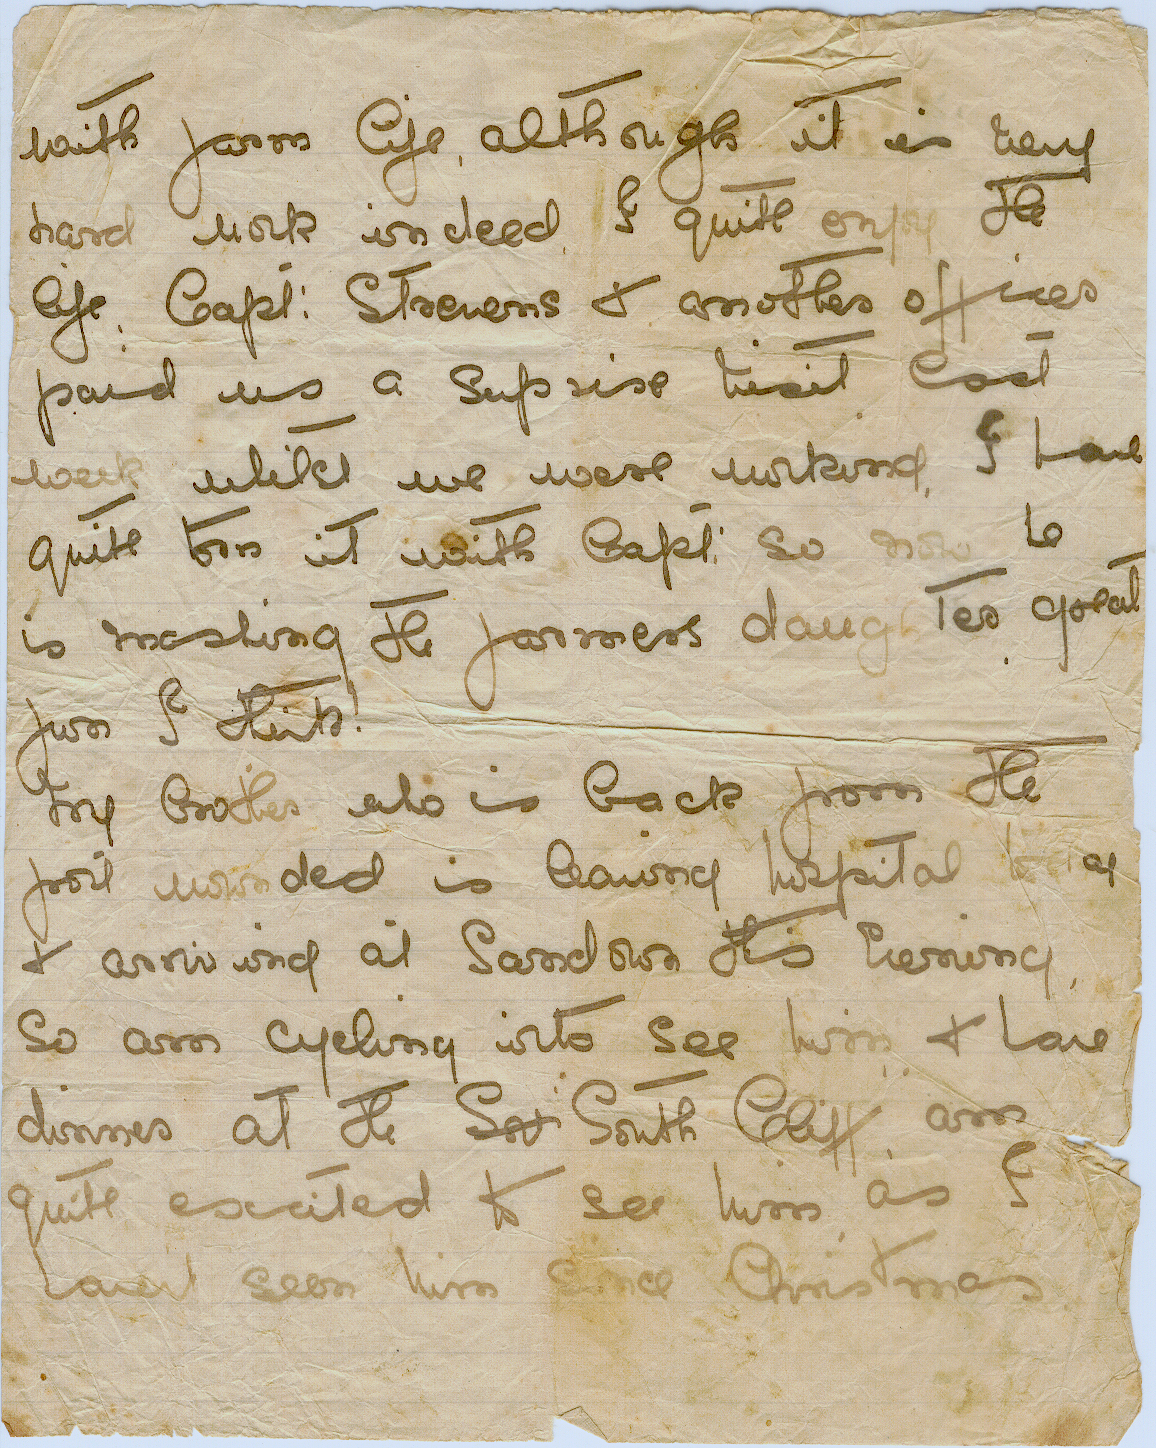 with farm life, although it is very
hard work indeed, I quite enjoy the
life. Capt: Strevens & another officer
paid us a suprise visit last
week whilst we were working, I have
quite torn it with Capt: so now he
is mashing the farmers daughter, great
fun I think!
My brother who is back from the
front wounded is leaving hospital today
& arriving at Sandown this evening,
so am cycling into see him & have
dinner at the South Cliff, am
quite excited to see him, as I
havent seen him since Christmas